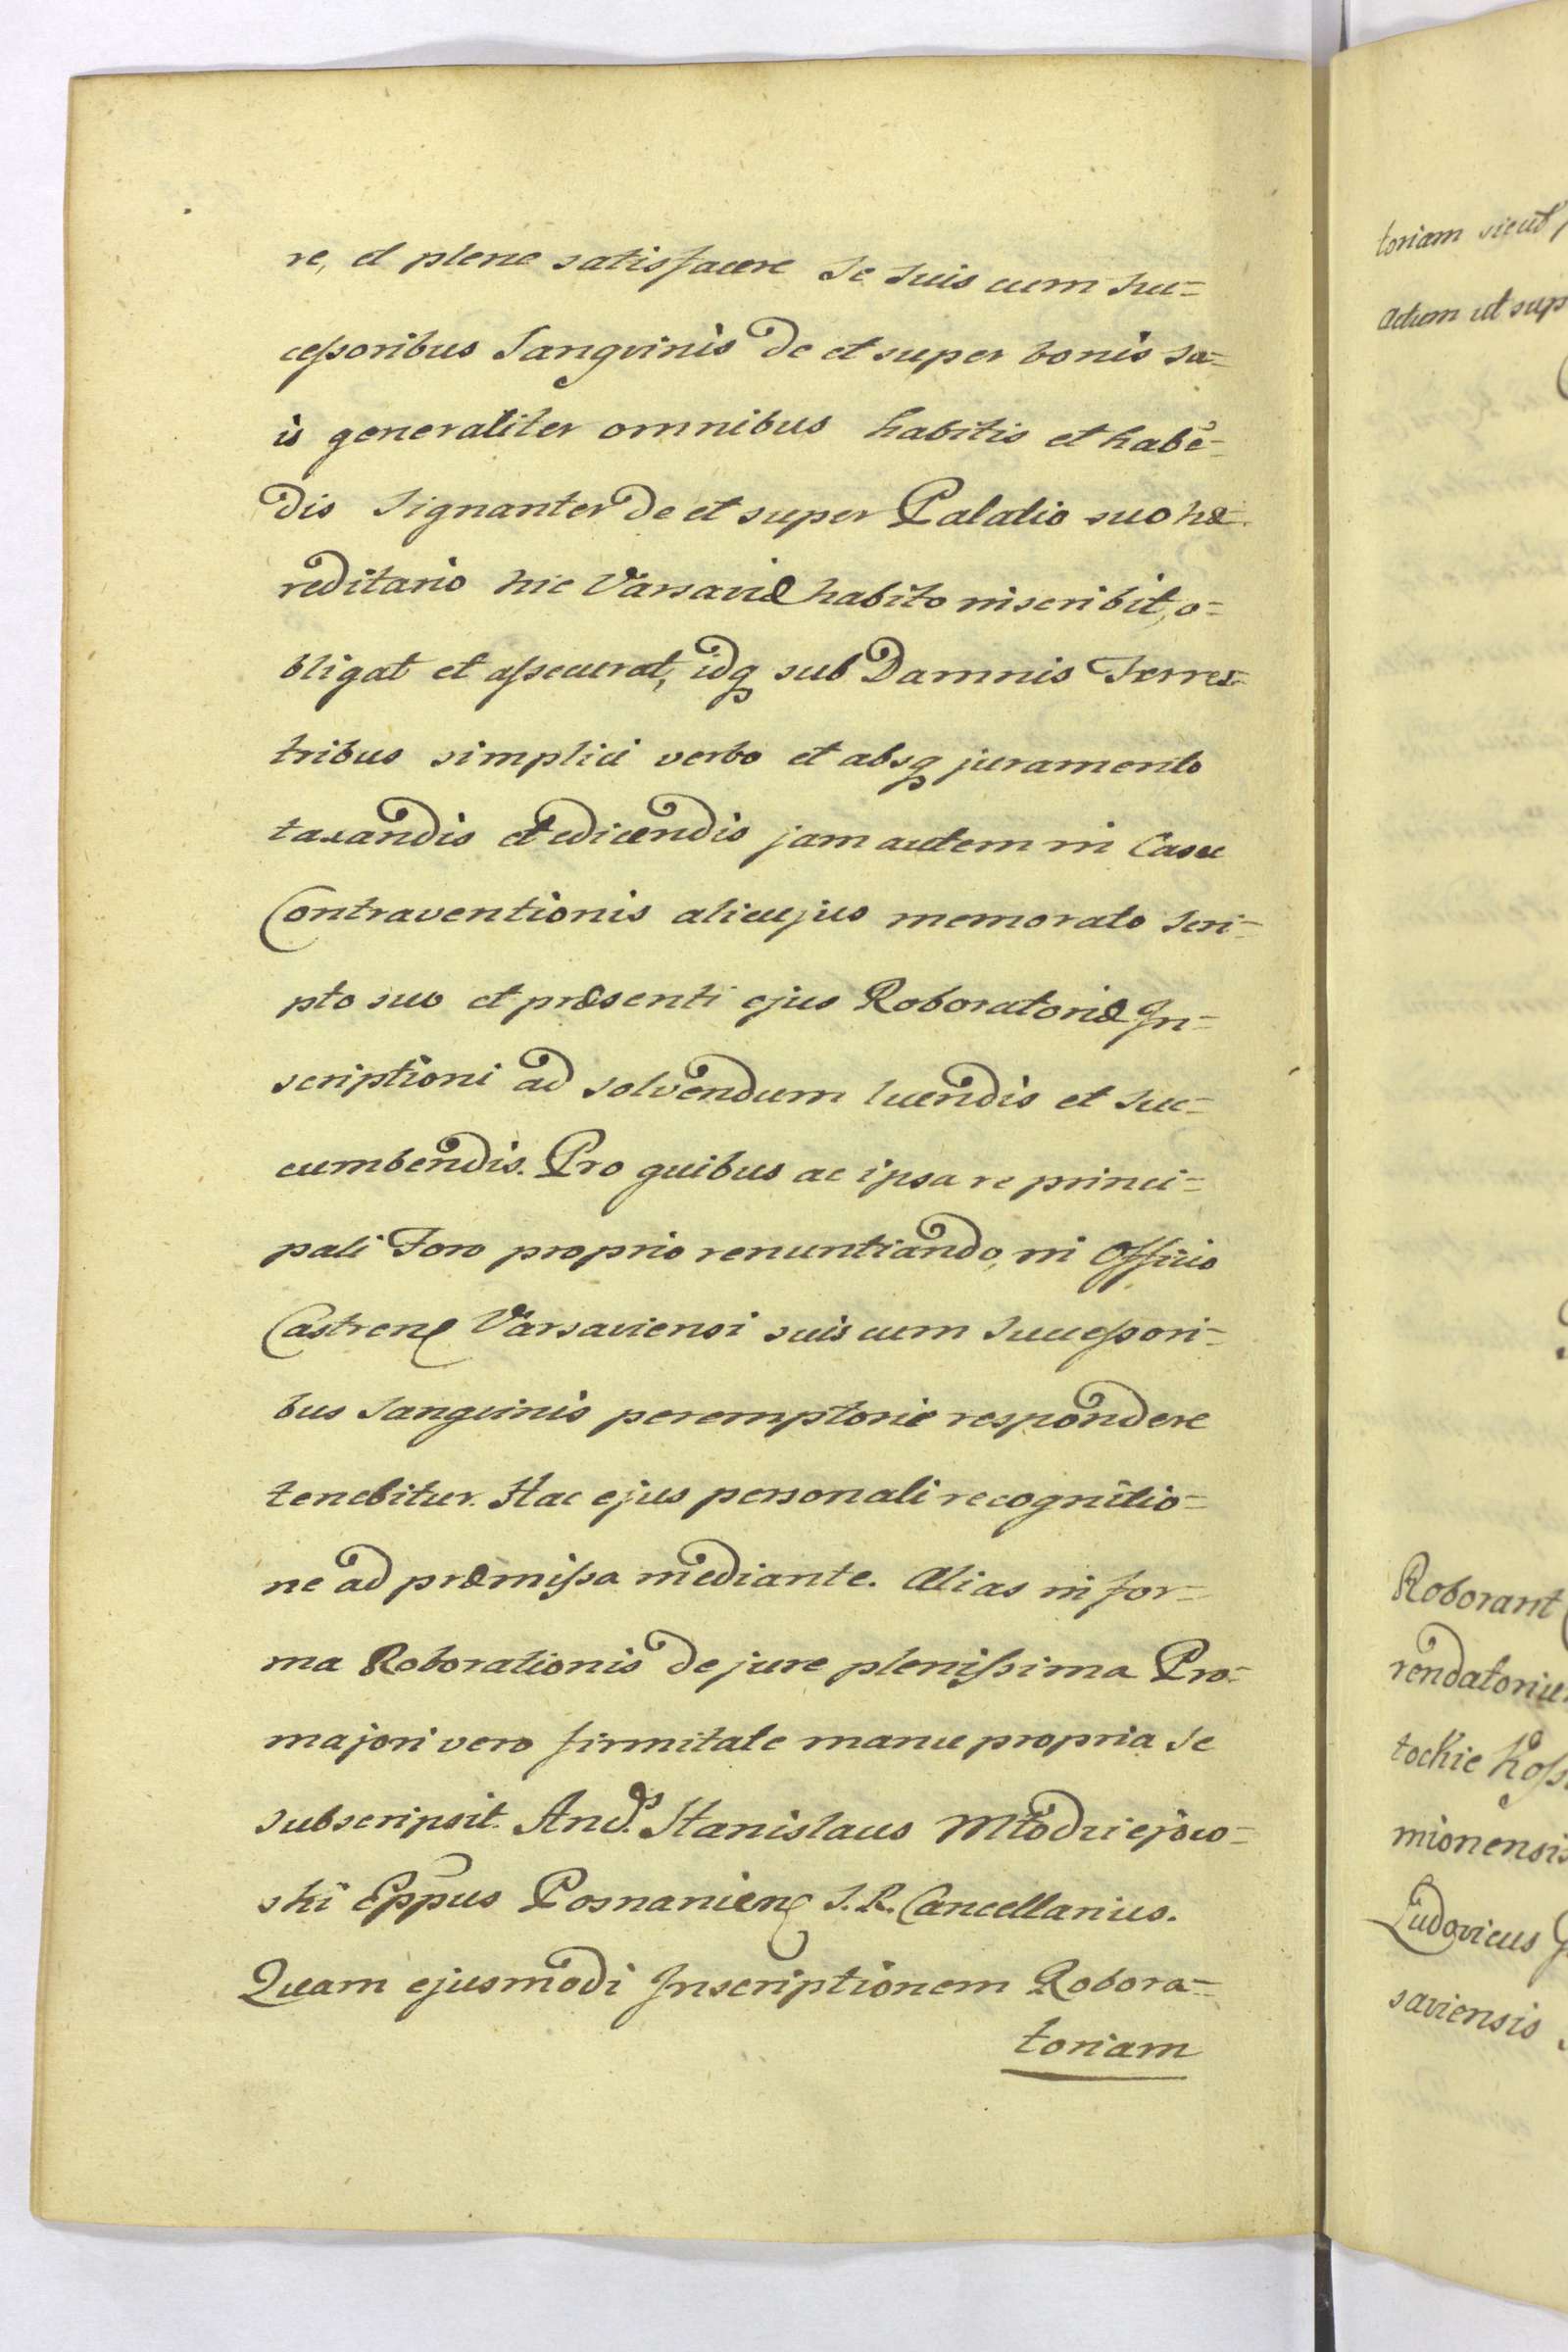 re, et plene satisfacere se suis cum suc=
cessoribus Sangvinis de et super bonis su=
is generaliter omnibus habitis et habē=
dis signanter de et super Palatio suo hæ=
reditario hic Varsaviæ habito inscribit, o=
bligat et assecurat, idq sub Damnis Terres=
tribus simplici verbo et absq juramento
taxandis et edicendis jam autem in Casu
Contraventionis alicujus memorato scri=
pto suo et præsenti ejus Roboratoriæ In=
scriptioni ad solvendum luendis et suc=
cumbendis. Pro quibus ac ipsa re princi=
pali Foro proprio renuntiando, in Officio
Castren Varsaviensi suis cum Successori=
bus Sangvinis peremptorie respondere
tenebitur. Hac ejus personali recognitio=
ne ad præmissa mediante. Alias in for=
ma Roborationis de jure plenissima Pro=
majori vero firmitate manu propria se
subscripsit. And.s Stanislaus Młodziejow=
ski Eppus Posnanien S. R. Cancellarius.
Quam ejusmodi Inscriptionem Robora=
toriam
toriam sicut
Actum ut sup
Roborant
rendatoriu
tockie Koss
mionensis
Ludovicus
saviensis